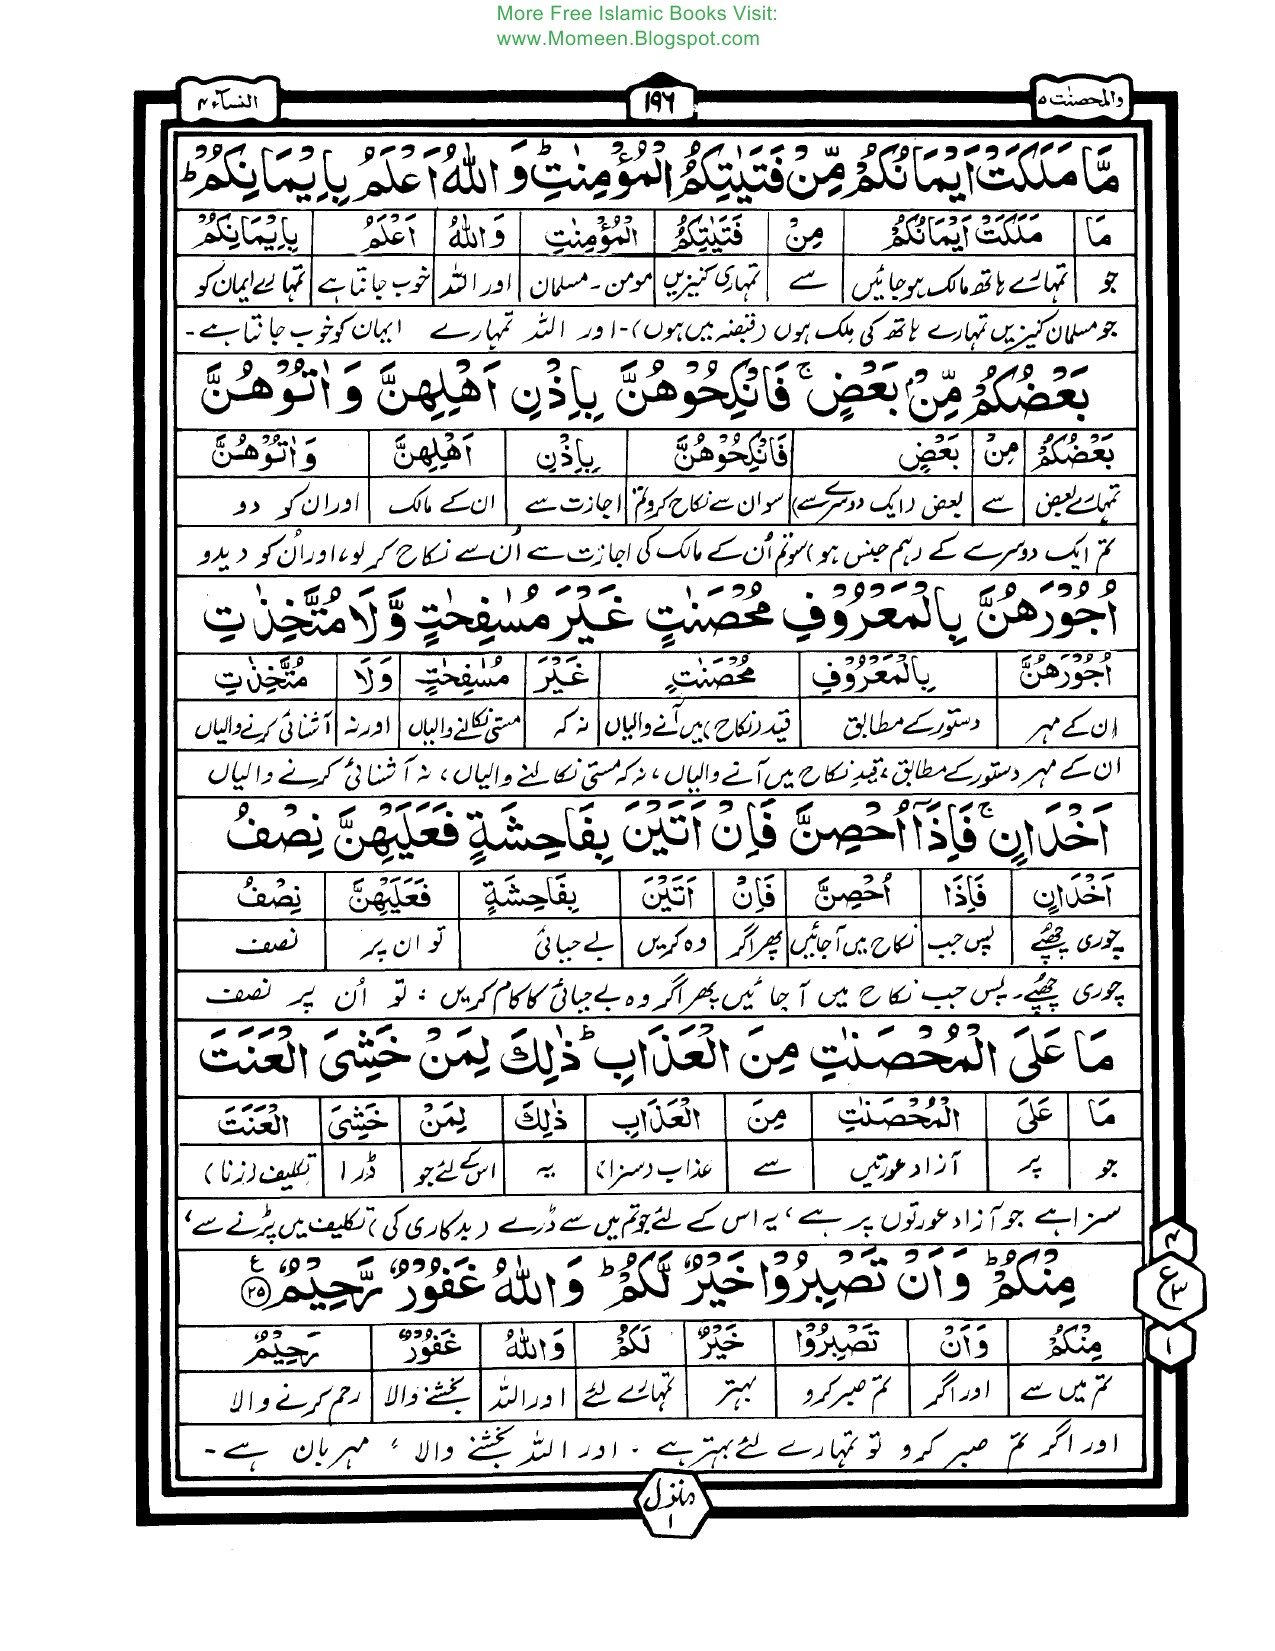 More Free Islamic Books Visit:
www.Momeen.Blogspot.com
والمحصنٰت ۵ ۱۹۶ النسآء ۴
مَّا مَلَكَتْ اَيْمَانُكُمْ مِّنْ فَتَيٰتِكُمُ الْمُؤْمِنٰتِ ؕ وَ اللّٰهُ اَعْلَمُ بِاِيْمَانِكُمْ ؕ
مَا مَلَكَتْ اَيْمَانُكُمْ مِنْ فَتَيٰتِكُمُ الْمُؤْمِنٰتِ وَاللّٰهُ اَعْلَمُ بِاِيْمَانِكُمْ
جو تمہارے ہاتھ مالک ہوجائیں سے تمہاری کنیزیں مومن۔مسلمان اور اللہ خوب جانتا ہے تمہارے ایمان کو
جو مسلمان کنیزیں تمہارے ہاتھ کی مِلک ہوں (قبضہ میں ہوں)۔ اور اللہ تمہارے ایمان کو خوب جانتا ہے۔
بَعْضُكُمْ مِّنْۢ بَعْضٍ ۚ فَانْكِحُوْهُنَّ بِاِذْنِ اَهْلِهِنَّ وَ اٰتُوْهُنَّ
بَعْضُكُمْ مِنْ بَعْضٍ فَانْكِحُوْهُنَّ بِاِذْنِ اَهْلِهِنَّ وَاٰتُوْهُنَّ
تمہارے بعض سے بعض (ایک دوسرے سے) سو ان سے نکاح کرو تم اجازت سے ان کے مالک اور ان کو دو
تم ایک دوسرے کے (ہم جنس ہو) سو تم اُن کے مالک کی اجازت سے اُن سے نکاح کرلو، اور اُن کو دیدو
اُجُوْرَهُنَّ بِالْمَعْرُوْفِ مُحْصَنٰتٍ غَيْرَ مُسٰفِحٰتٍ وَّ لَا مُتَّخِذٰتِ
اُجُوْرَهُنَّ بِالْمَعْرُوْفِ مُحْصَنٰتٍ غَيْرَ مُسٰفِحٰتٍ وَلَا مُتَّخِذٰتِ
ان کے مہر دستور کے مطابق قید (نکاح) میں آنے والیاں نہ کہ مستی نکالنے والیاں اور نہ آشنائی کرنے والیاں
ان کے مہر دستور کے مطابق، قید نکاح میں آنے والیاں، نہ کہ مستی نکالنے والیاں، نہ آشنائی کرنے والیاں
اَخْدَانٍ ۚ فَاِذَاۤ اُحْصِنَّ فَاِنْ اَتَيْنَ بِفَاحِشَةٍ فَعَلَيْهِنَّ نِصْفُ
اَخْدَانٍ فَاِذَا اُحْصِنَّ فَاِنْ اَتَيْنَ بِفَاحِشَةٍ فَعَلَيْهِنَّ نِصْفُ
چوری چھپے پس جب نکاح میں آجائیں پھر اگر وہ کریں بے حیائی تو ان پر نصف
چوری چھپے۔ پس جب نکاح میں آ جائیں پھر اگر وہ بے حیائی کا کام کریں، تو اُن پر نصف
مَا عَلَى الْمُحْصَنٰتِ مِنَ الْعَذَابِ ؕ ذٰلِكَ لِمَنْ خَشِىَ الْعَنَتَ
مَا عَلَى الْمُحْصَنٰتِ مِنَ الْعَذَابِ ذٰلِكَ لِمَنْ خَشِىَ الْعَنَتَ
جو پر آزاد عورتیں سے عذاب (سزا) یہ اس کے لئے جو ڈرا تکلیف (زنا)
سزا ہے جو آزاد عورتوں پر ہے، یہ اس کے لئے جو تم میں سے ڈرے (بدکاری کی) تکلیف میں پڑنے سے،
مِنْكُمْ ؕ وَ اَنْ تَصْبِرُوْا خَيْرٌ لَّكُمْ ؕ وَ اللّٰهُ غَفُوْرٌ رَّحِيْمٌ ۲۵ ع
مِنْكُمْ وَاَنْ تَصْبِرُوْا خَيْرٌ لَكُمْ وَاللّٰهُ غَفُوْرٌ رَحِيْمٌ
تم میں سے اور اگر تم صبر کرو بہتر تمہارے لئے اور اللہ بخشنے والا رحم کرنے والا
اور اگر تم صبر کرو تو تمہارے لئے بہتر ہے۔ اور اللہ بخشنے والا، مہربان ہے۔
۴
ع ۳
۱
منزل
۱